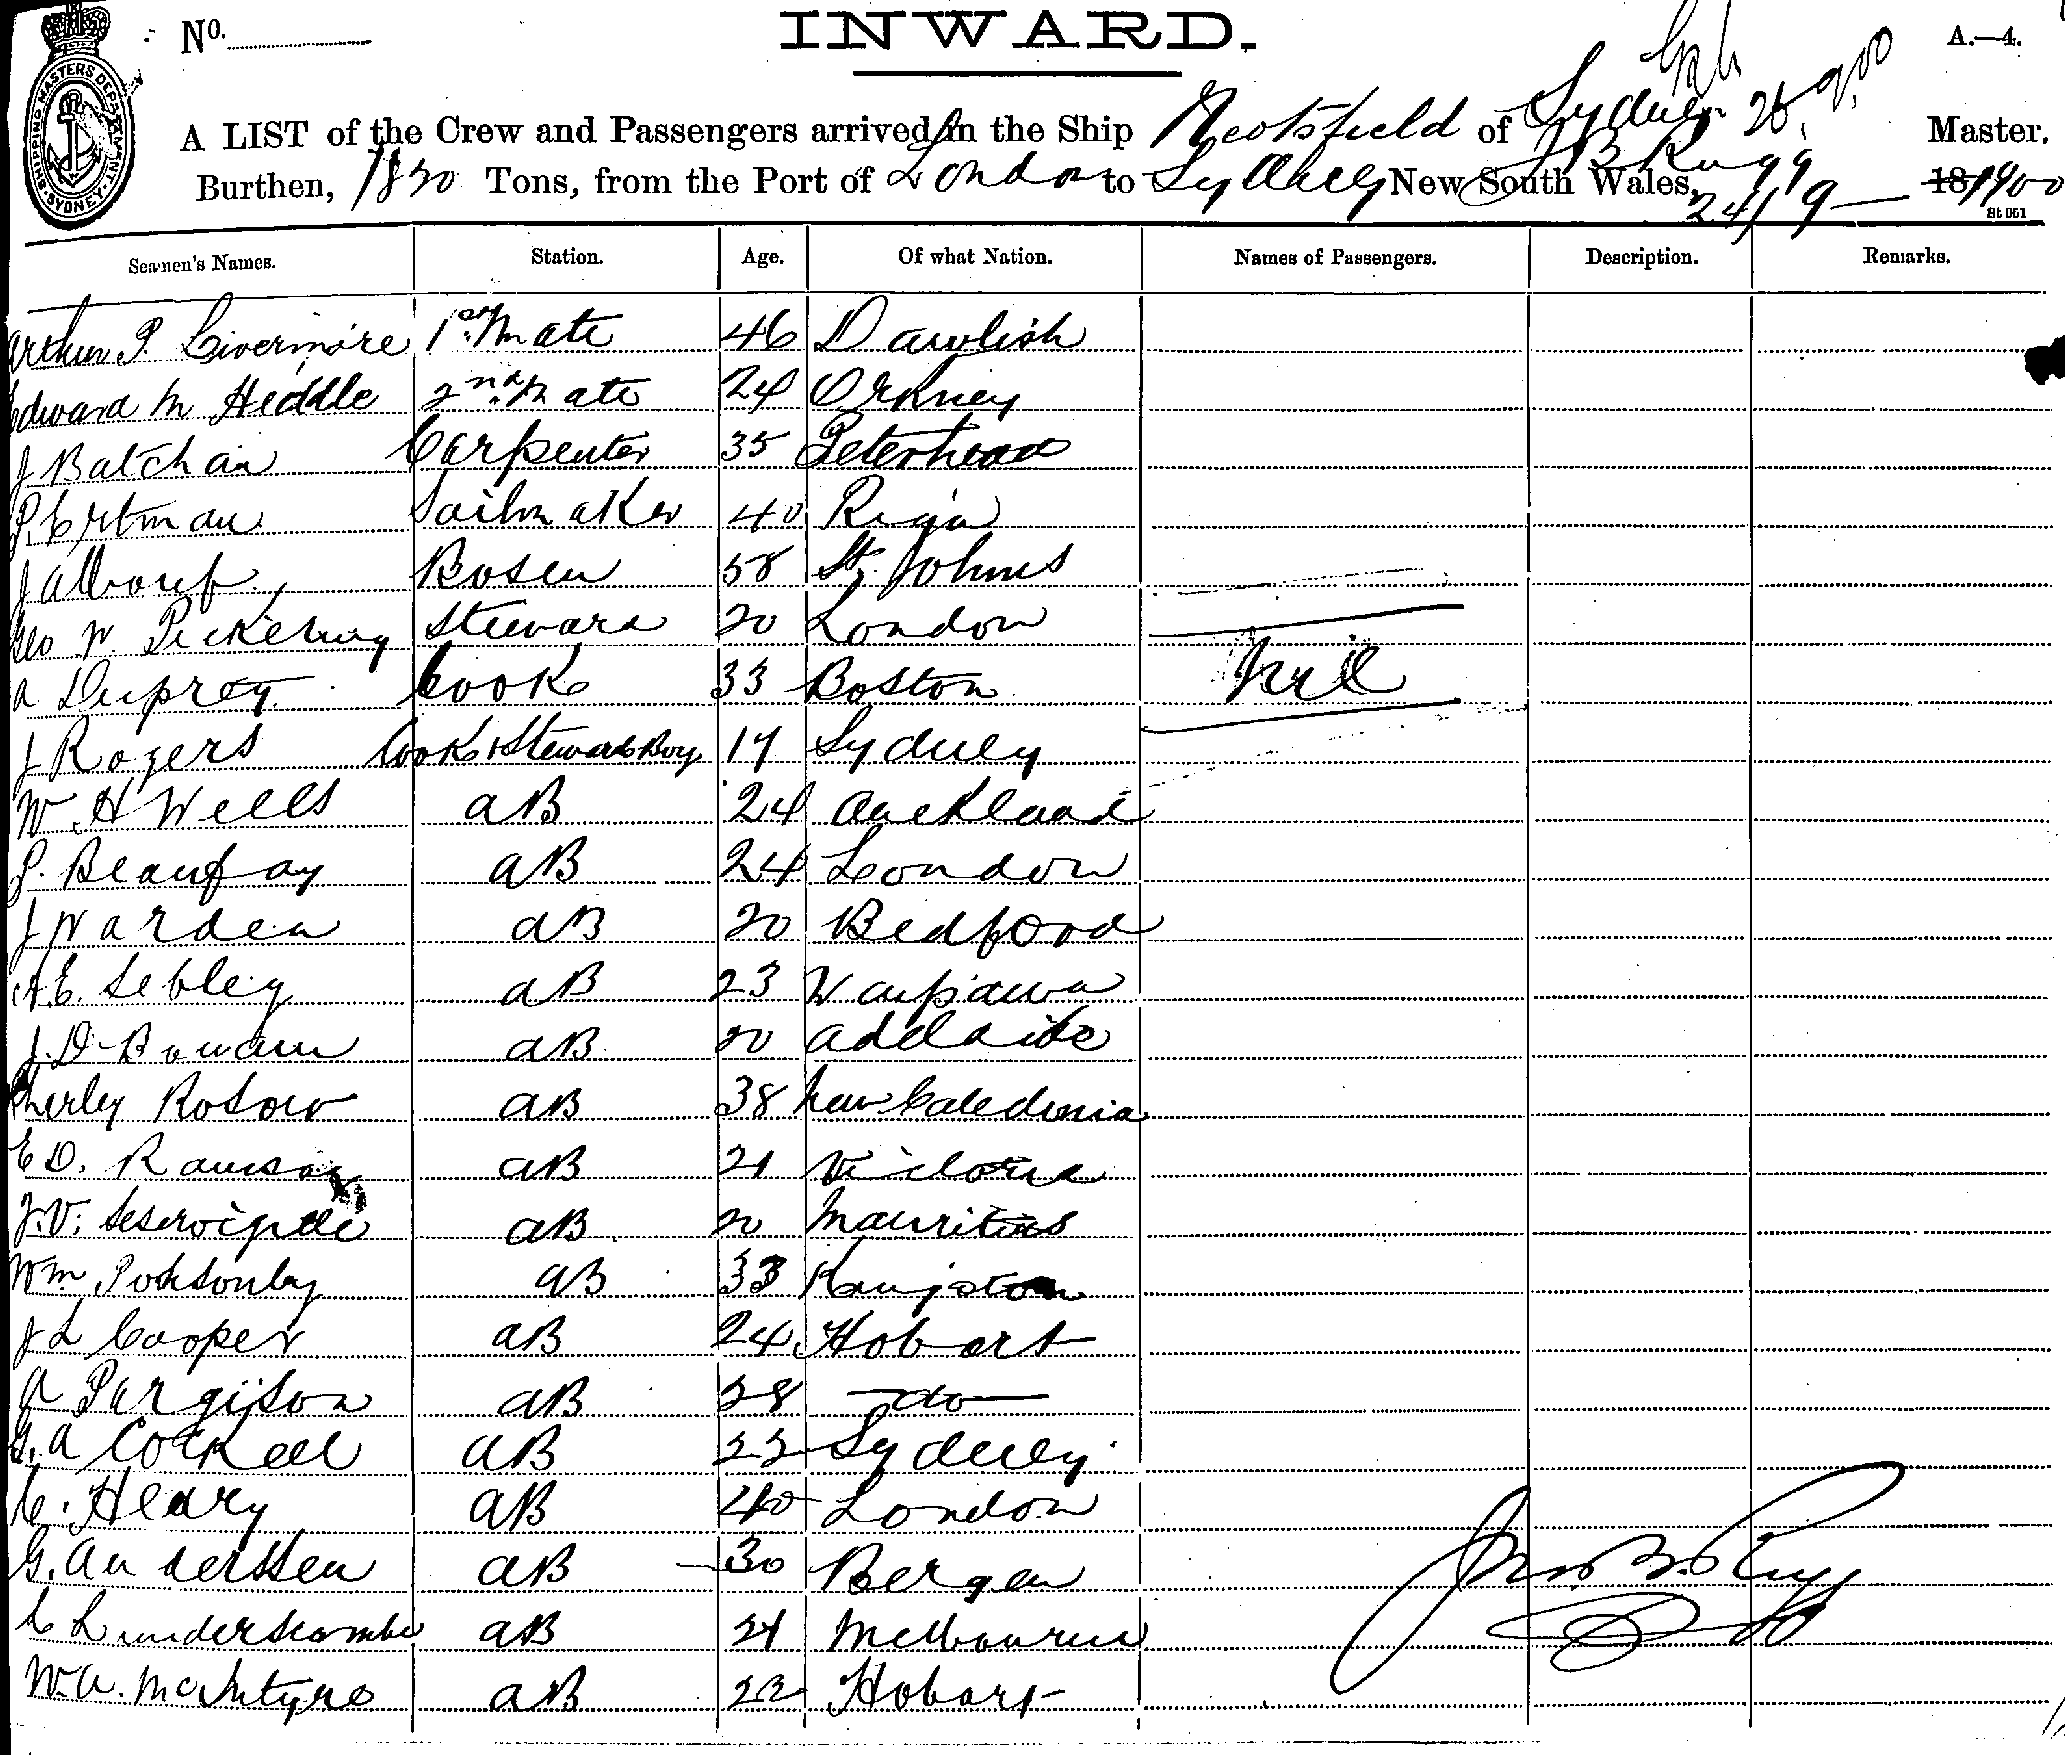 No.
INWARD.
A.—4.
SHIPPING MASTERS DEPARTMENT SYDNEY
A LIST of the Crew and Passengers arrived in the Ship Neotsfield of Sydney J B Rugg Master.
Burthen, 1850 Tons, from the Port of London to Sydney New South Wales, 24/9 — 18 1900
St 061
Seamen's Names. Station. Age. Of what Nation. Names of Passengers. Description. Remarks.
Arthur P. Livermore 1st Mate 46 Dawlish
Edward M Heddle 2nd Mate 24 Orkney
J Batchan Carpenter 35 Peterhead
P. Ertman Sailmaker 40 Riga
J Bosen 58 St. Johns
Geo W. Pickering Steward 20 London
A Duprey Cook 33 Boston Nil
J Rogers Cook & Stewards Boy 17 Sydney
W. H Wells AB 24 Auckland
P. Beaufoy AB 24 London
J Warden AB 20 Bedford
A.E. Sebley AB 23 Waipawa
J. D. AB 20 Adelaide
Rosow AB 38 New Caledonia
E D. AB 21 Victoria
J.V. AB 20 Mauritius
Wm Ponsonby AB 33 Kingston
J L Cooper AB 24 Hobart
A Pargiison AB 28 — do —
G. A Cockell AB 22 Sydney
C. Heary AB 40 London
G. Anderssen AB 30 Bergen
C Lunderscombe AB 21 Melbourne
Jno. B. Rugg
W. A. McIntyre AB 22 Hobart